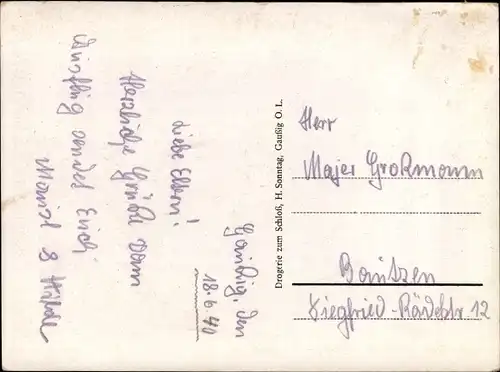 Gaußig, den
18.6.40
Liebe Eltern!
Herzliche Grüße vom
Ausflug sendet Euch
Drogerie zum Schloß, H. Sonntag, Gaußig O. L.
Herr
Major Großmann
Bautzen
Siegfried-Rädelstr 12